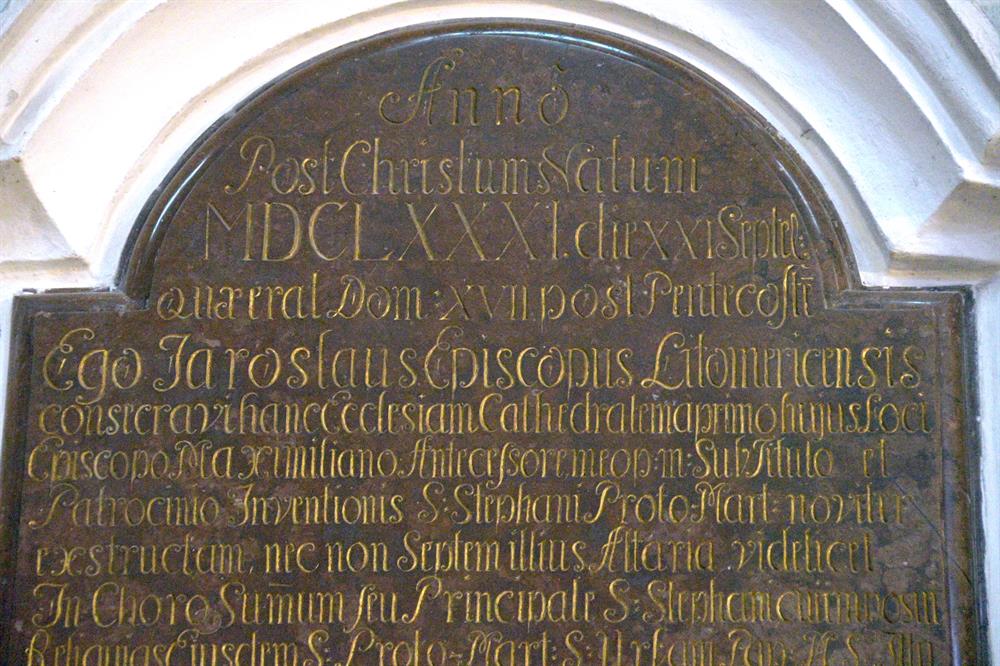 Annō
Post Christum Natum
MDCLXXXI. die XXI Septe:
quæ erat Dom: XVII post Pentecostē
Ego Jaroslaus Episcopus Litomericensis
consecravi hanc Ecclesiam Cathedralem a primo hujus Loci
Episcopo Maximiliano Antecessore meo p: m: Sub Titulo et
Patrocinio Inventionis S: Stephani Proto Mart: noviter
exstructam, nec non Septem illius Altaria videlicet
In Choro Sum̄um seu Principale S: Stephani cui imposui
Reliquias Ejusdem S: Proto-Mart: S: Pap: